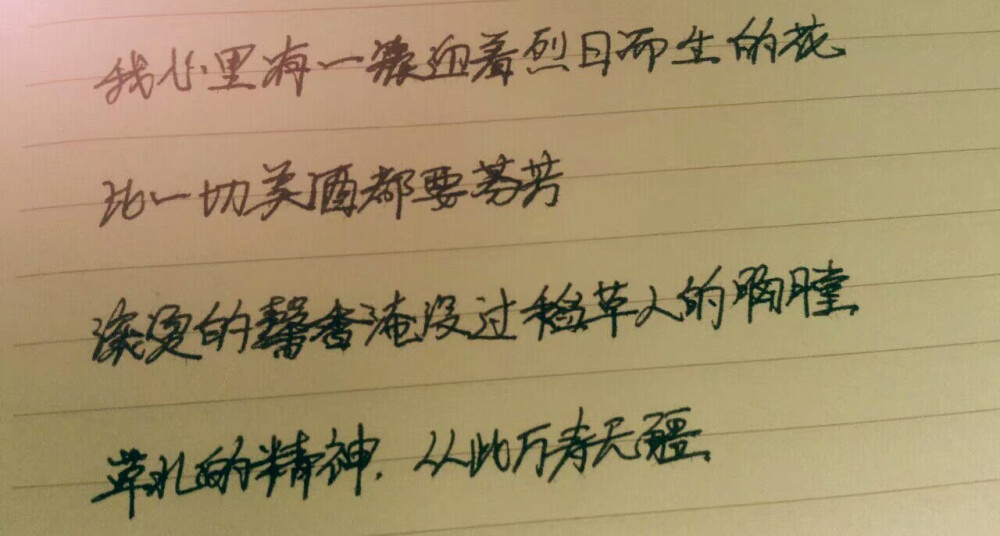 我心里有一簇迎着烈日而生的花
比一切美酒都要芬芳
滚烫的馨香淹没过稻草人的胸膛
草扎的精神，从此万寿无疆